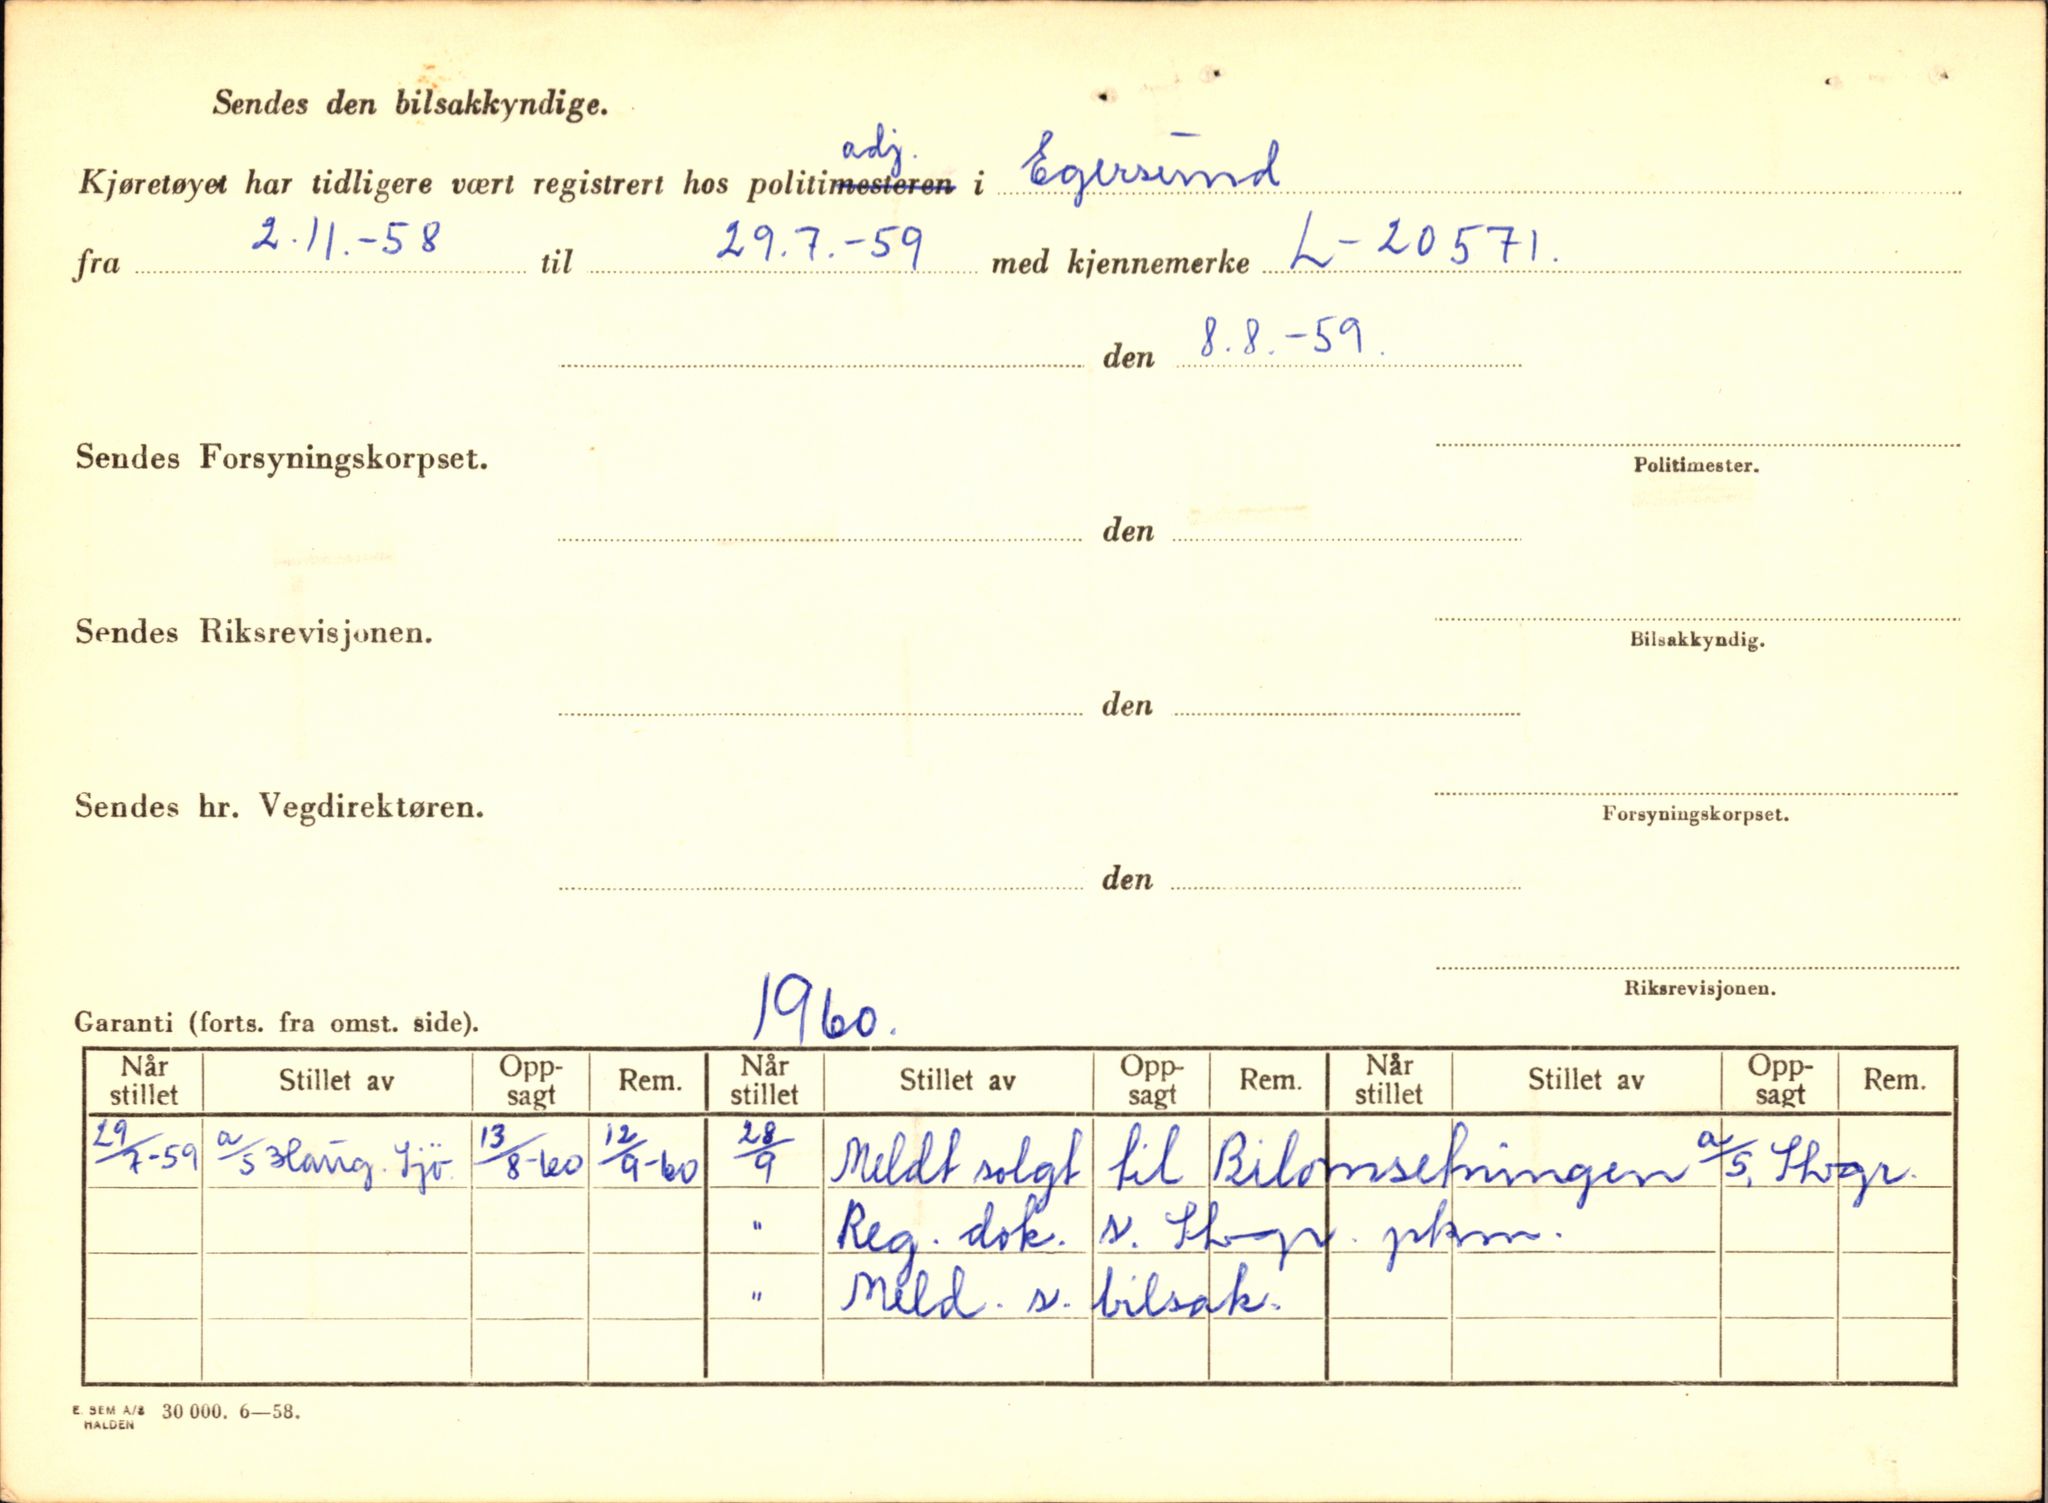 Sendes den bilsakkyndige.
adj.
Kjøretøyet har tidligere vært registrert hos politimesteren i Egersund
fra 2.11.-58 til 29.7.-59 med kjennemerke L-20571.
den 8.8.-59.
Sendes Forsyningskorpset.
Politimester.
den
Sendes Riksrevisjonen.
Bilsakkyndig.
den
Sendes hr. Vegdirektøren.
Forsyningskorpset.
den
Riksrevisjonen.
1960.
Garanti (forts. fra omst. side).
Når stillet Stillet av Opp-sagt Rem. Når stillet Stillet av Opp-sagt Rem. Når stillet Stillet av Opp-sagt Rem.
29/7-59 a/s Haug. Sjø. 13/8-60 12/9-60 28/9 Meldt solgt til Bilomsetningen a/s, Sthvgr.
" Reg. dok. s. pkm.
" Meld. s. bilsak.
E. SEM A/S HALDEN 30 000. 6—58.